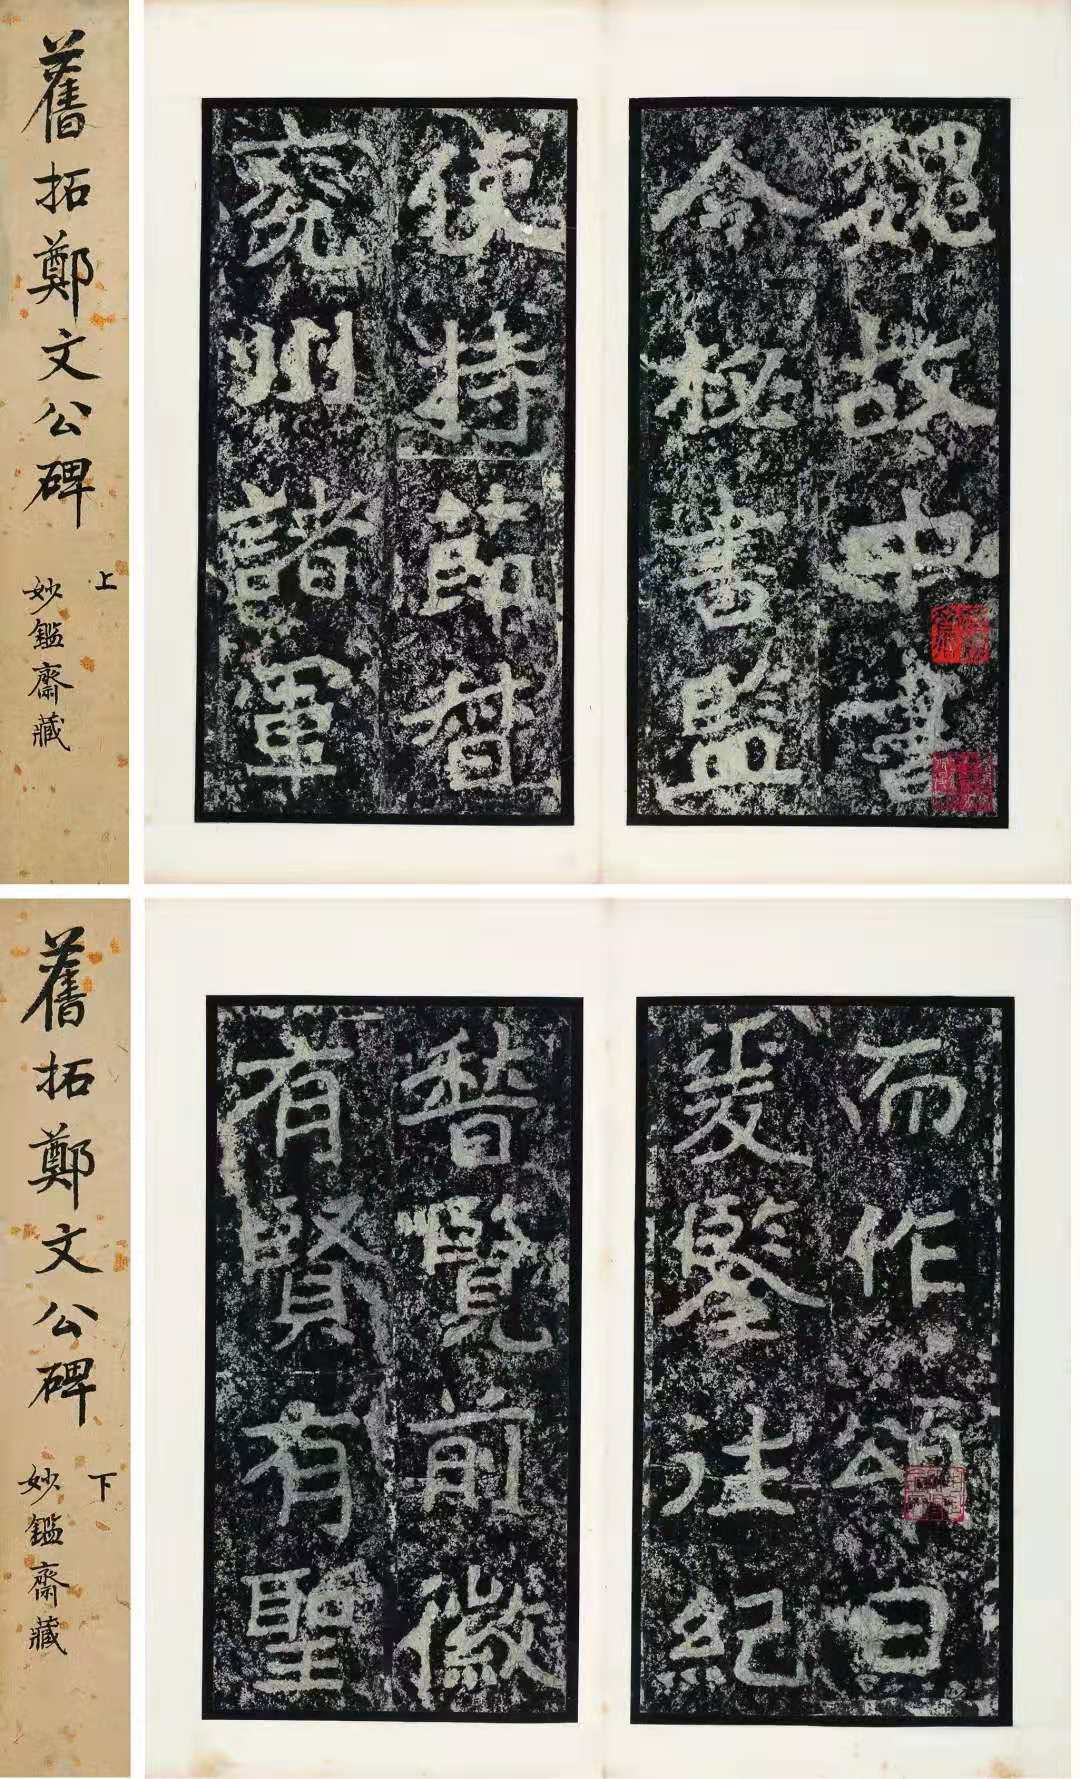 舊拓鄭文公碑
上
妙鑑齋藏
魏故中書
令秘書監
使持節督
兗州諸軍
舊拓鄭文公碑
下
妙鑑齋藏
而作頌曰
爰鑒往紀
稽覽前徽
有賢有聖